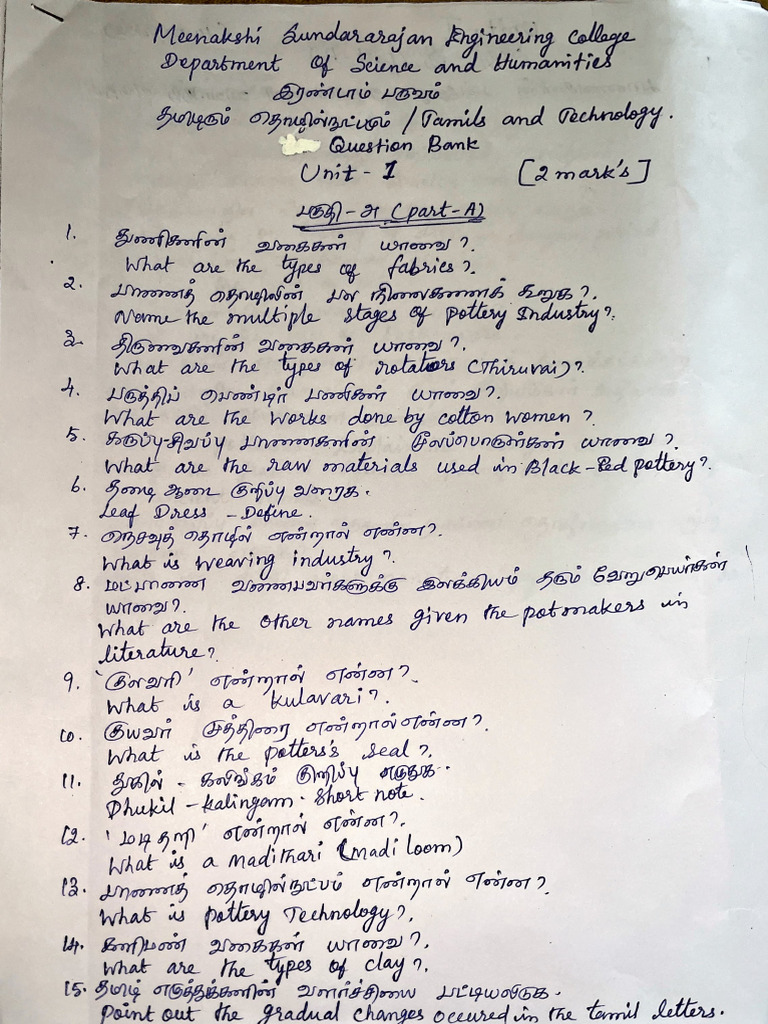 Meenakshi Sundararajan Engineering College
Department Of Science and Humanities
இரண்டாம் பருவம்
தமிழரும் தொழில்நுட்பமும் / Tamils and Technology.
Question Bank
Unit - 1 [2 mark's]
பகுதி - அ (part-A)
1. துணிகளின் வகைகள் யாவை?.
What are the types of fabrics?.
2. பானைத் தொழிலின் பல நிலைகளைக் கூறுக?.
Name the multiple stages of pottery Industry?.
3. திருவைகளின் வகைகள் யாவை?.
What are the types of rotators (Thiruvai)?.
4. பருத்திப் பெண்டிர் பணிகள் யாவை?.
What are the works done by cotton women?.
5. கருப்பு-சிவப்பு பானைகளின் மூலப்பொருள்கள் யாவை?.
What are the raw materials used in Black-Red pottery?.
6. தழை ஆடை குறிப்பு வரைக.
Leaf Dress - Define.
7. நெசவுத் தொழில் என்றால் என்ன?.
What is weaving industry?.
8. மட்பாணை வனைபவர்களுக்கு இலக்கியம் தரும் வேறுபெயர்கள்
யாவை?.
What are the other names given the potmakers in
literature?
9. 'குலவரி' என்றால் என்ன?.
What is a kulavari?.
10. குயவர் முத்திரை என்றால் என்ன?.
What is the potters's seal?.
11. துகில் - கலிங்கம் குறிப்பு எழுதுக.
Dhukil - Kalingam. Short note.
12. 'மடி தறி' என்றால் என்ன?.
What is a madithari (madi loom)
13. பானைத் தொழில்நுட்பம் என்றால் என்ன?.
What is pottery Technology?.
14. களிமண் வகைகள் யாவை?.
What are the types of clay?.
15. தமிழ் எழுத்துக்களின் வளர்ச்சியை பட்டியலிடுக.
Point out the gradual changes occured in the tamil letters.